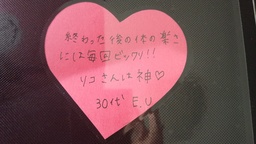 終わった後の体の楽さ
には毎回ビックリ!!
リコさんは神♡
30代 E.U